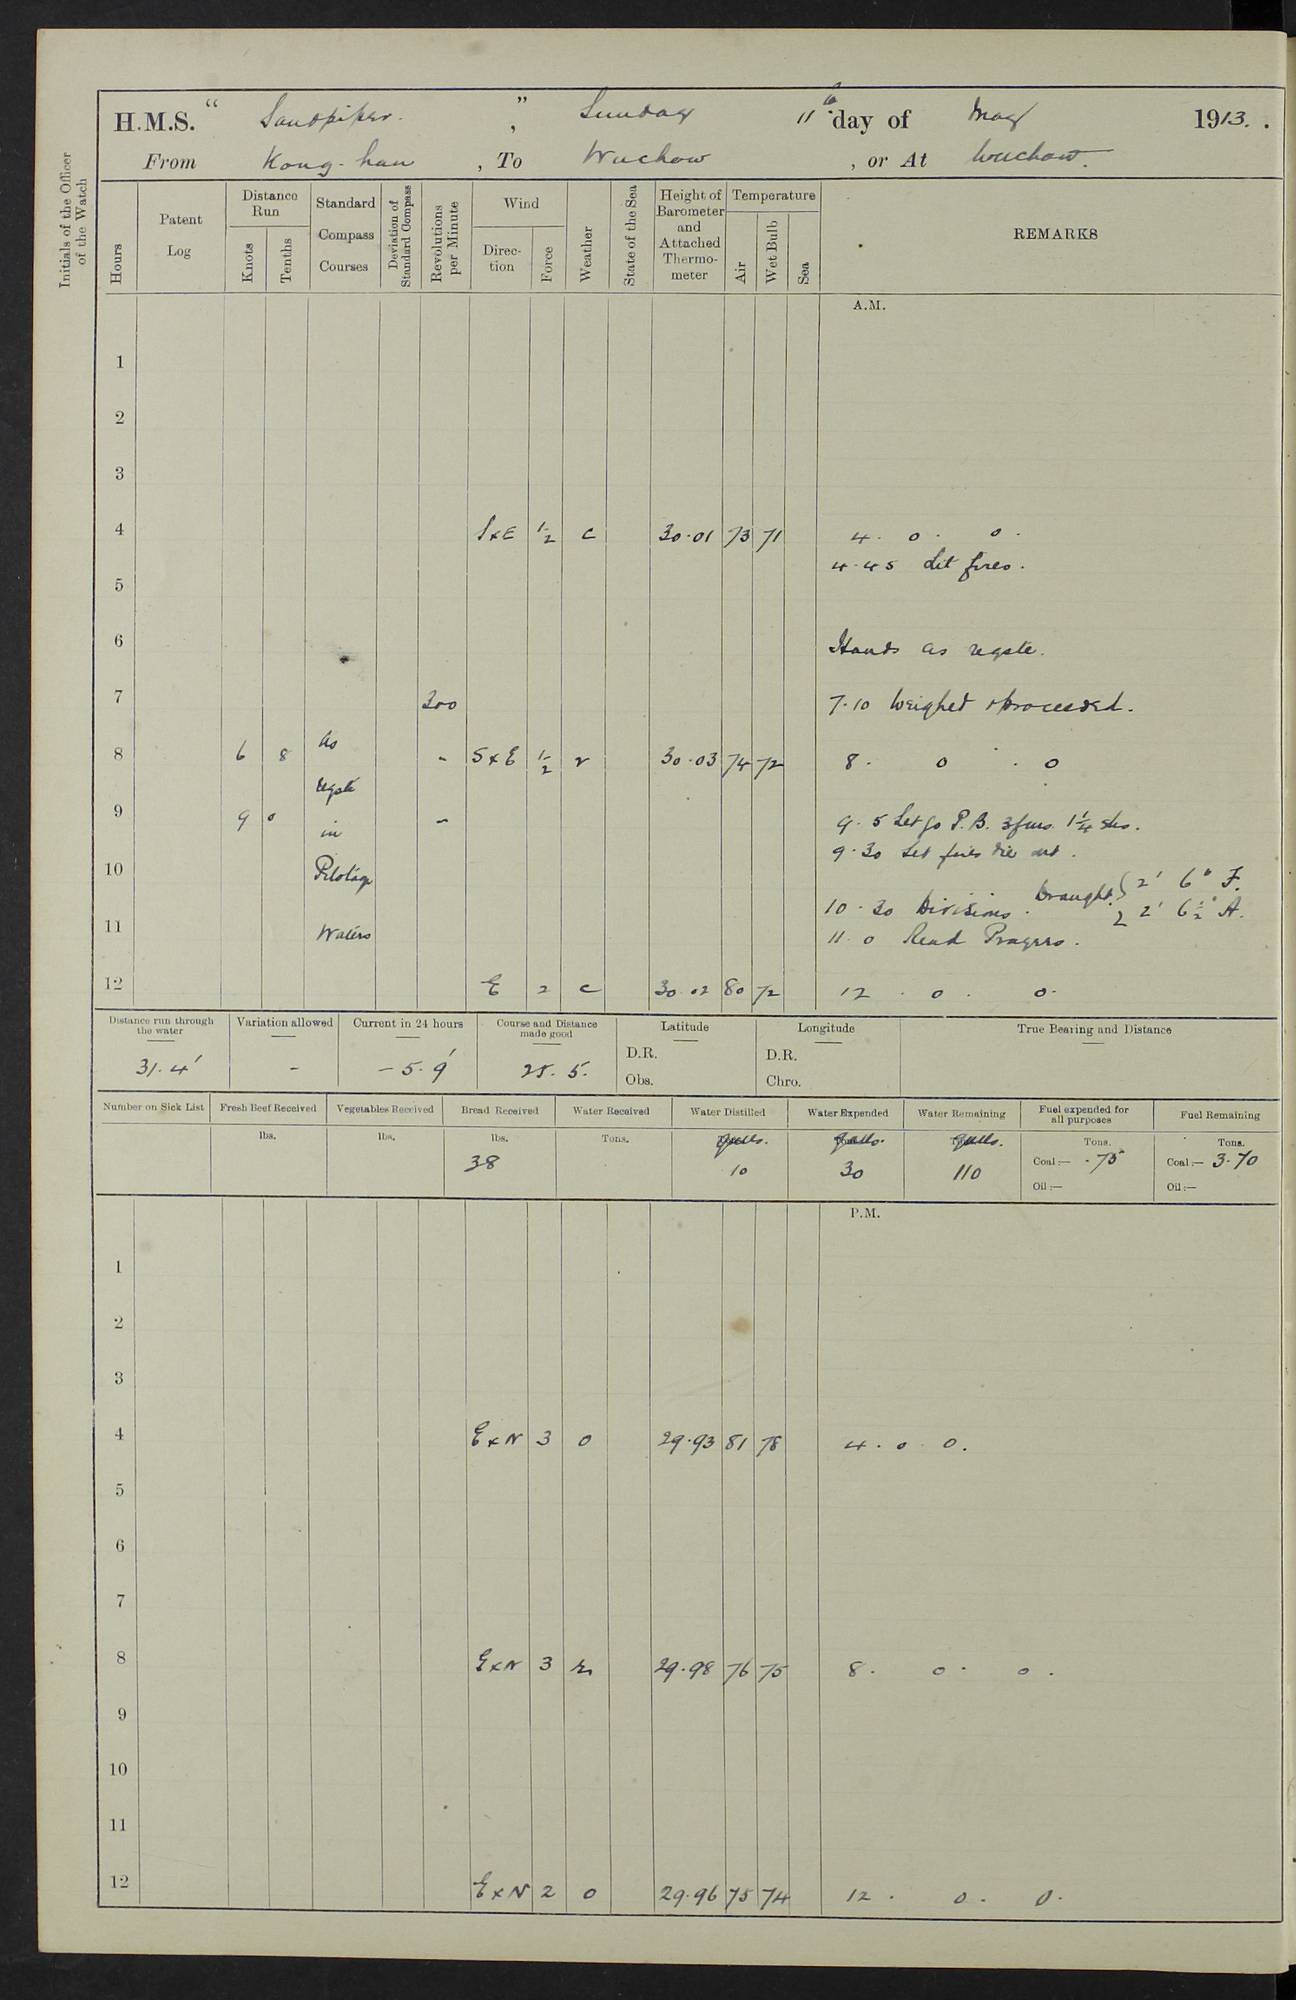 H.M.S. " Sandpiper. " , Sunday 11th day of May 1913.
From Kong-hau , To Wuchow , or At Wuchow.
Initials of the Officer of the Watch
Hours
Patent Log
Distance Run
Knots
Tenths
Standard Compass Courses
Deviation of Standard Compass
Revolutions per Minute
Wind
Direction
Force
Weather
State of the Sea
Height of Barometer and Attached Thermometer
Temperature
Air
Wet Bulb
Sea
REMARKS
A.M.
1
2
3
4 SxE 1/2 c 30.01 73 71 4. 0. 0.
4.45 Lit fires.
5
6 Hands as reqste.
7 300 7.10 Weighed & proceeded.
8 6 8 As - SxE 1/2 r 30.03 74 72 8. 0. 0
reqste
9 9 0 in - 9.5 Let go P.B. 3 fms. 1 1/4 shs.
9.30 Let fires die out.
10 Pilotage
10.30 Divisions. Draught { 2' 6" F.
2' 6 1/2" A.
11 Waters 11.0 Read Prayers.
12 E 2 c 30.02 80 72 12. 0. 0.
Distance run through the water
31.4'
Variation allowed
-
Current in 24 hours
-5.9'
Course and Distance made good
25.5.
Latitude
D.R.
Obs.
Longitude
D.R.
Chro.
True Bearing and Distance
Number on Sick List
Fresh Beef Received
lbs.
Vegetables Received
lbs.
Bread Received
lbs.
38
Water Received
Tons.
Water Distilled
galls.
10
Water Expended
galls.
30
Water Remaining
galls.
110
Fuel expended for all purposes
Tons.
Coal:— .75
Oil:—
Fuel Remaining
Tons.
Coal:— 3.70
Oil:—
P.M.
1
2
3
4 ExN 3 o 29.93 81 78 4. 0. 0.
5
6
7
8 ExN 3 r 29.98 76 75 8. 0. 0.
9
10
11
12 ExN 2 o 29.96 75 74 12. 0. 0.